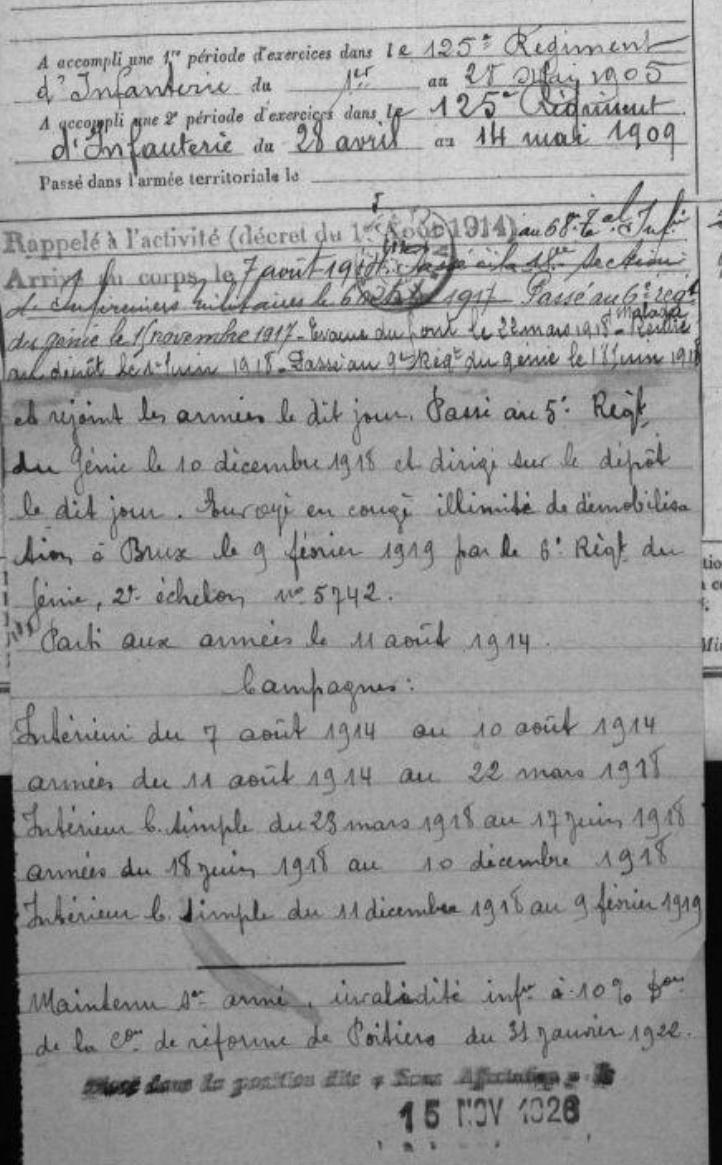 A accompli une 1re période d'exercices dans le 125e Régiment
d'Infanterie du 1er au 28 Mai 1905
A accompli une 2e période d'exercices dans le 125e Régiment
d'Infanterie du 28 avril au 14 mai 1909
Passé dans l'armée territoriale le
Rappelé à l'activité (décret du 1er Août 1914) au 68e d'Infie
Arrivé au corps le 7 août 1914. Passé à la section
d'infirmiers militaires le 6 1917 Passé au 6e régt
du génie le 15 novembre 1917 - Evacué du front le 22 mars 1918 - Malade Rentré
au dépôt le 1er Juin 1918 - Passé au 9e Régt du génie le 18 Juin 1918
et rejoint les armées le dit jour. Passé au 5e Régt
du Génie le 10 décembre 1918 et dirigé sur le dépôt
le dit jour. Envoyé en congé illimité de démobilisa
tion à Brux le 9 février 1919 par le 6e Régt du
Génie, 2e échelon, no 5742.
Parti aux armées le 11 août 1914.
Campagnes :
Intérieur du 7 août 1914 au 10 août 1914
armées du 11 août 1914 au 22 mars 1918
Intérieur C. simple du 23 mars 1918 au 17 juin 1918
armées du 18 juin 1918 au 10 décembre 1918
Intérieur C. simple du 11 décembre 1918 au 9 février 1919
Maintenu sce armé, invalidité infre à 10% Don
de la Con de réforme de Poitiers du 31 janvier 1922.
dans la position dite « Sans Affectation » le
15 NOV 1926